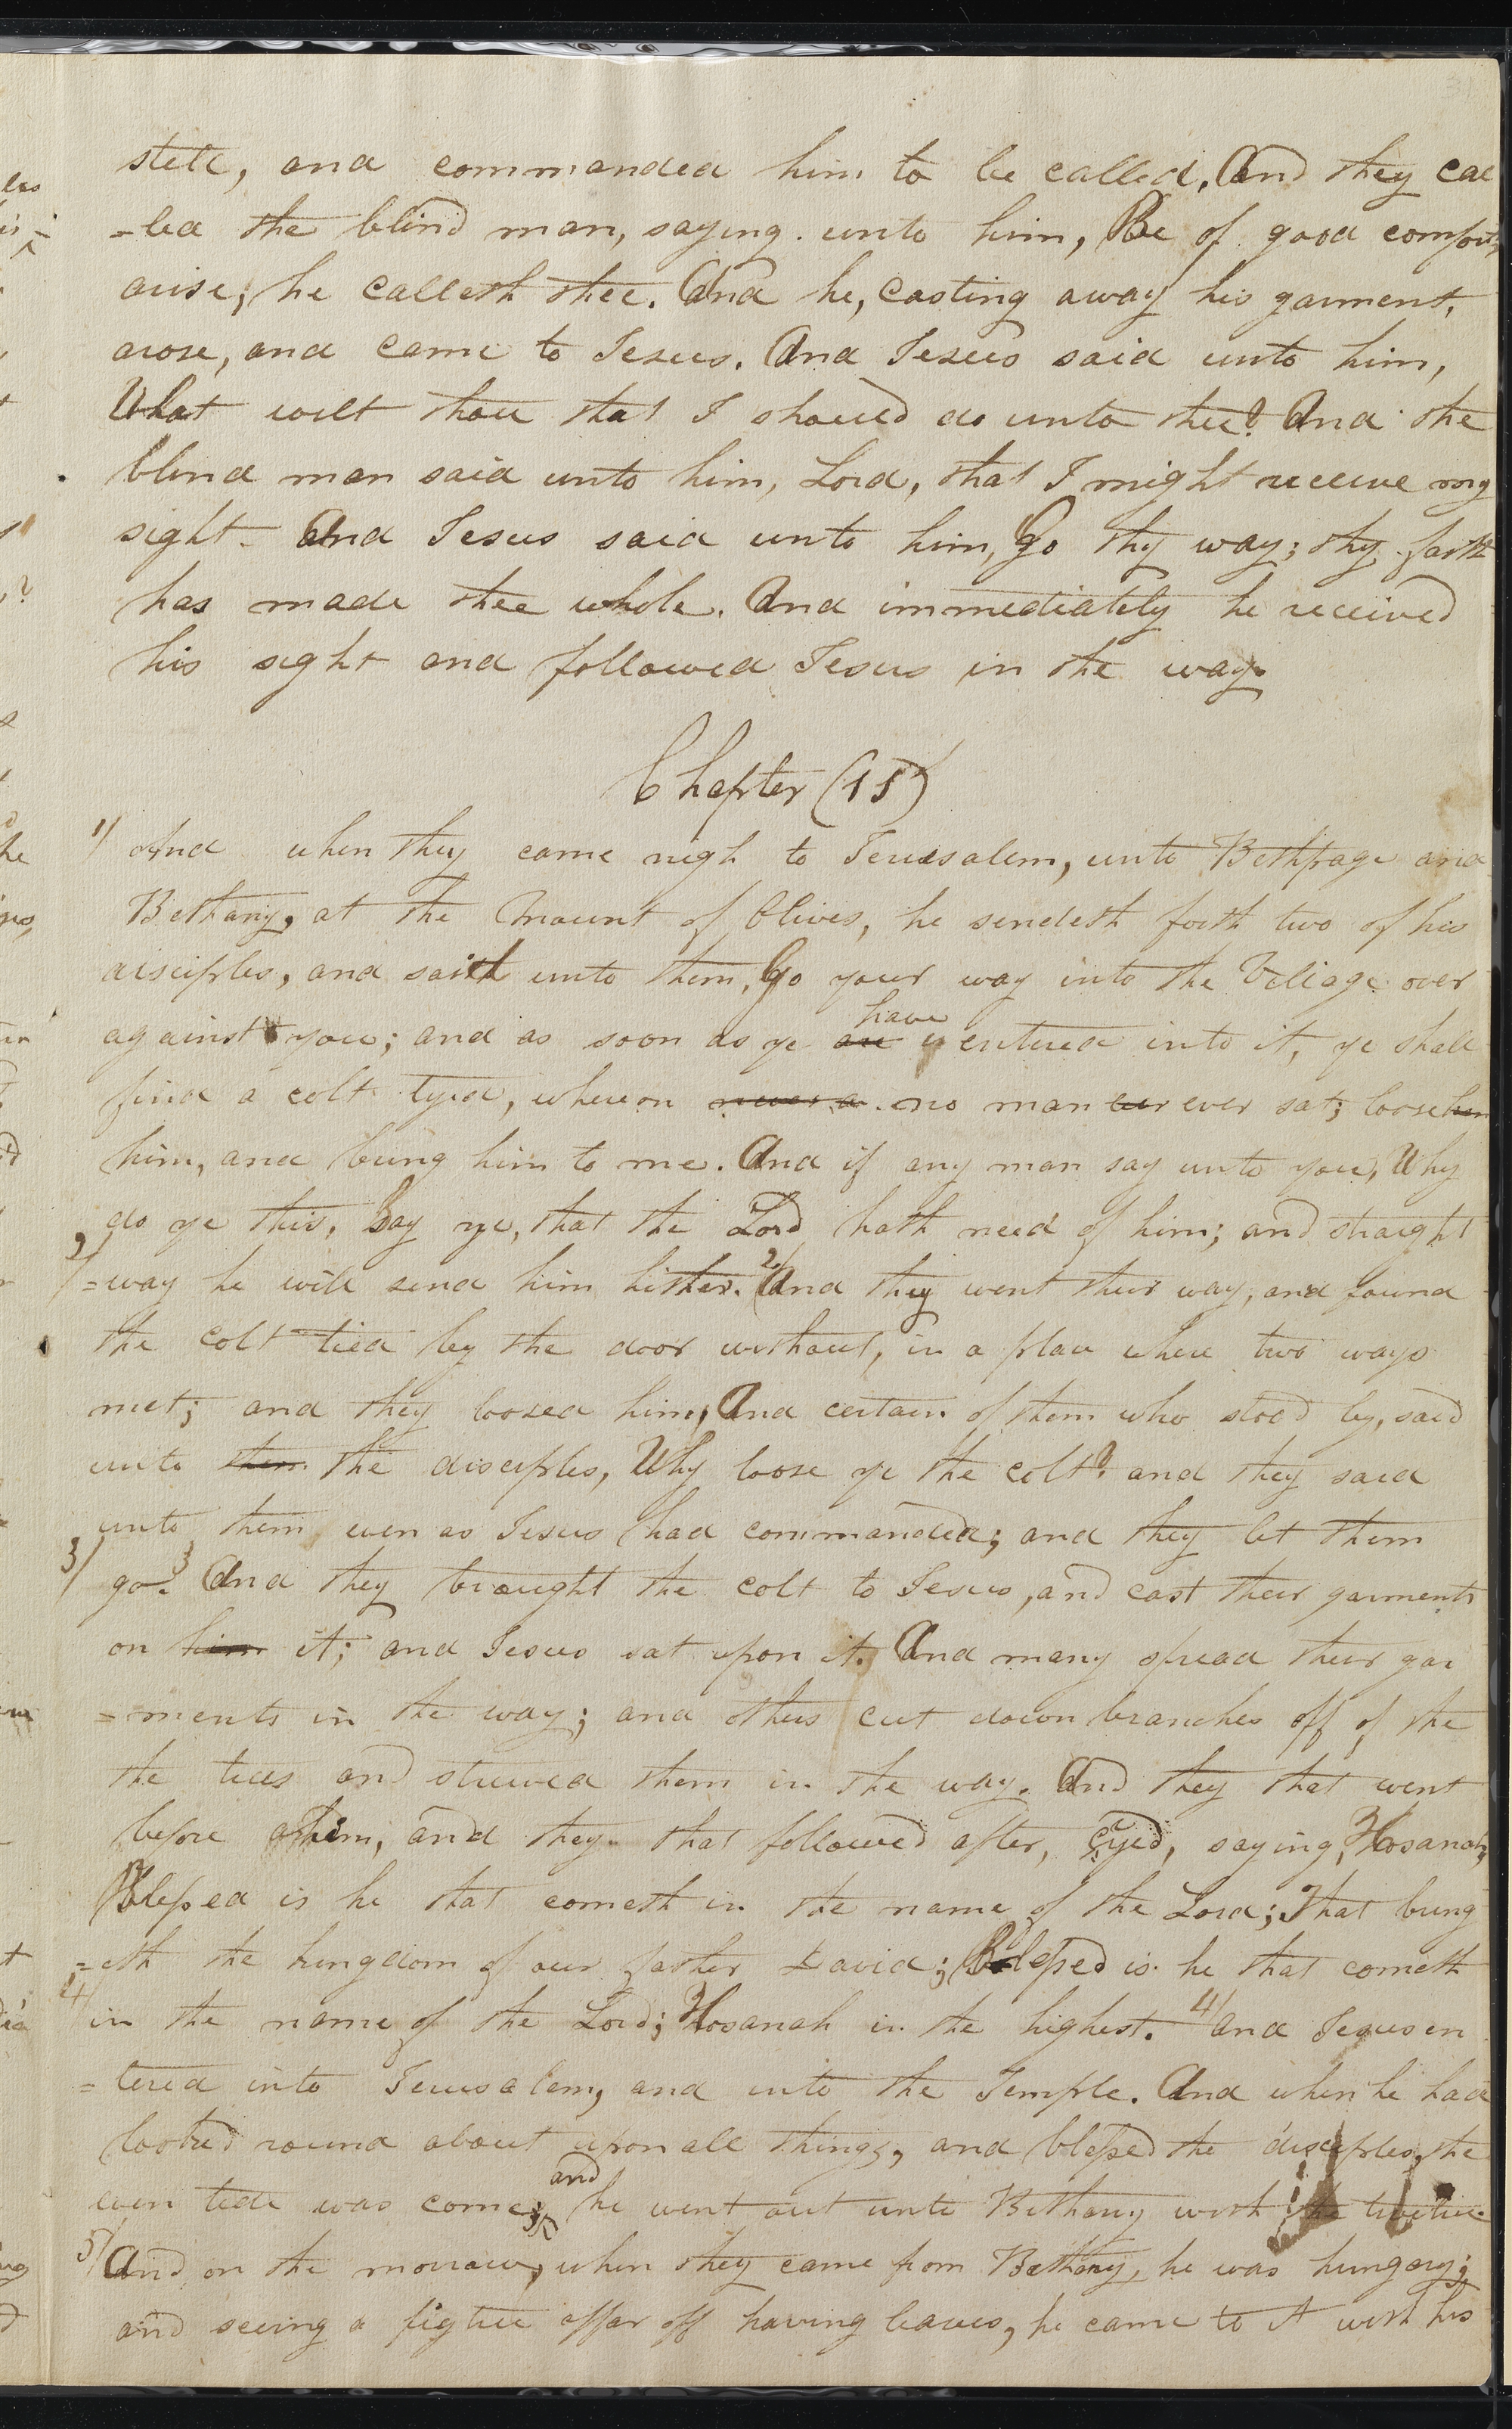 still, and commanded him to be called, And they cal
=led the blind man, saying unto him, Be of good comfort,
arise; he calleth thee. And he, casting away his garment,
arose, and came to Jesus. And Jesus said unto him,
What wilt thou that I should do unto thee? And the
blind man said unto him, Lord, that I might receive my
sight. And Jesus said unto him, Go thy way; thy faith
has made thee whole. And immediately he received
his sight and followed Jesus in the way.
Chapter (15)
1/ And when they came nigh to Jerusalem, unto Bethpage and
Bethany, at the Mount of Olives, he sendeth forth two of his
disciples, and saith unto them, Go your way into the Village over
have
against you; and as soon as ye are entered into it, ye shall
find a colt tyed, whereon never a no man ever ever sat; loose him
him, and bring him to me. And if any man say unto you, Why
do ye this, Say ye, that the Lord hath need of him; and straight
2/ =way he will send him hither. 2/ And they went their way, and found
the colt tied by the door without, in a place where two ways
met; and they loosed him, And certain of them who stood by, said
unto them the disciples, Why loose ye the colt? and they said
unto them even as Jesus had commanded; and they let them
3/ go. 3 And they brought the colt to Jesus, and cast their garments
on him it; and Jesus sat upon it. And many spread their gar
=ments in the way; and others cut down branches off of the
the trees and strewed them in the way. And they that went
before him, and they that followed after, cryed, saying, Hosanah,
Blessed is he that cometh in the name of the Lord; That bring
=eth the kingdom of our father David; Blessed is he that cometh
4/ in the name of the Lord; Hosanah in the highest. 4/ and Jesus en
=tered into Jerusalem, and into the Temple. And when he had
looked round about upon all things, and blessed the disciples, the
and
even tide was come; he went out unto Bethany with the twelve.
5/ And on the morrow, when they came from Bethany, he was hungry;
and seeing a figtree affar off having leaves, he came to it with his